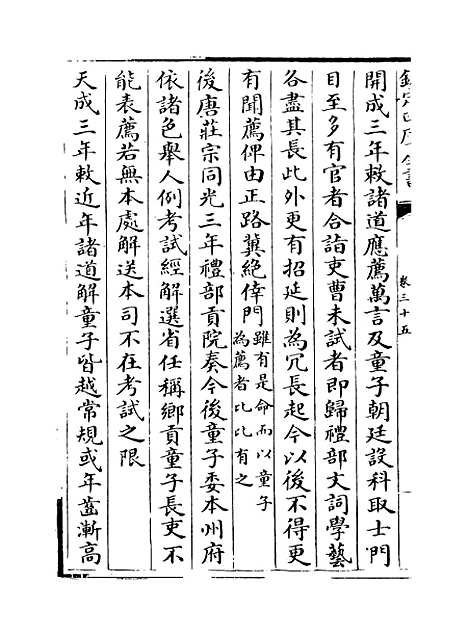 欽定四庫全書
卷三十五
開成三年敕諸道應薦萬言及童子朝廷設科取士門
目至多有官者合詣吏曹未試者即歸禮部文詞學藝
各盡其長此外更有招延則為冗長起今以後不得更
有聞薦俾由正路冀絶倖門雖有是命而以童子
為薦者比比有之
後唐莊宗同光三年禮部貢院奏今後童子委本州府
依諸色舉人例考試經解選省任稱鄉貢童子長吏不
能表薦若無本處解送本司不在考試之限
天成三年敕近年諸道解童子皆越常規或年齒漸高